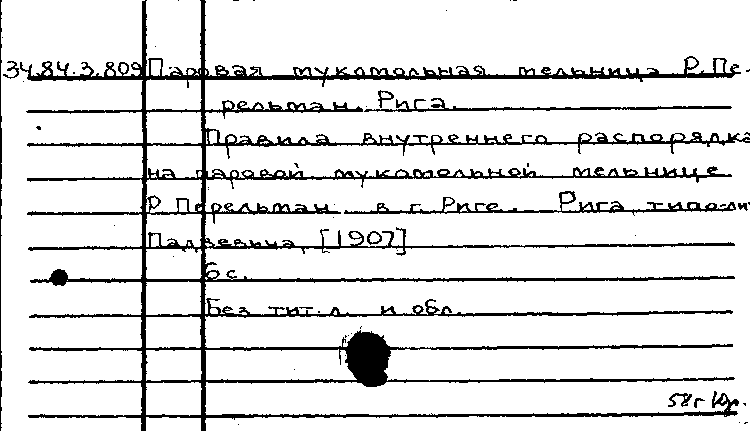 34.84.3.809 Паровая мукомольная мельница Р. Пе-
рельман. Рига.
Правила внутреннего распорядка
на паровой мукомольной мельнице
Р. Перельман в г. Риге. Рига, типо-лит
[1907]
6 с.
Без тит. л. и обл.
58 г